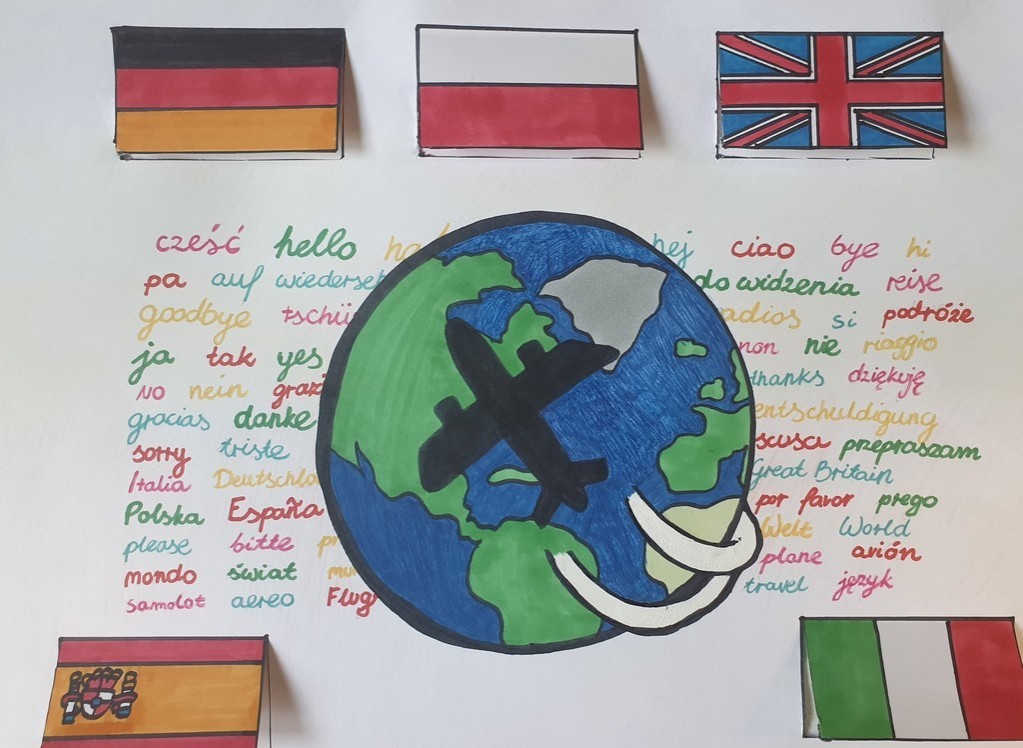 cześć hello hej ciao bye hi
pa auf wiederseh do widzenia reise
goodbye tschü adios si podróże
ja tak yes non nie viaggio
No nein grazi thanks dziękuję
gracias danke entschuldigung
sorry triste scusa przepraszam
Italia Deutschla Great Britain
Polska España por favor prego
please bitte Welt World
mondo świat plane avión
samolot aereo Flug travel język